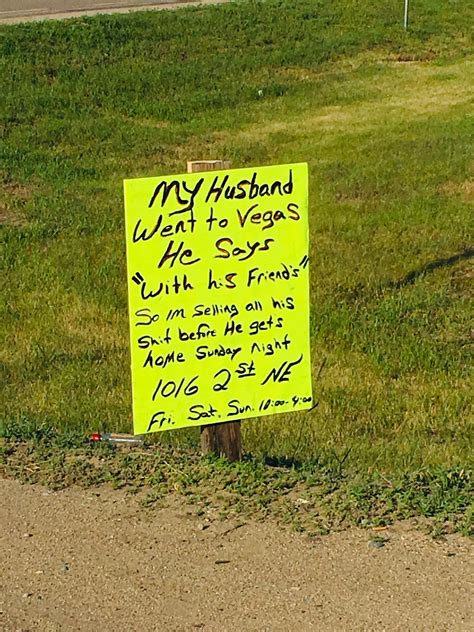 My Husband
Went to Vegas
He Says
"With his Friend's"
So im Selling all his
Shit before He gets
home Sunday night
1016 2st NE
Fri. Sat. Sun. 10:00-4:00